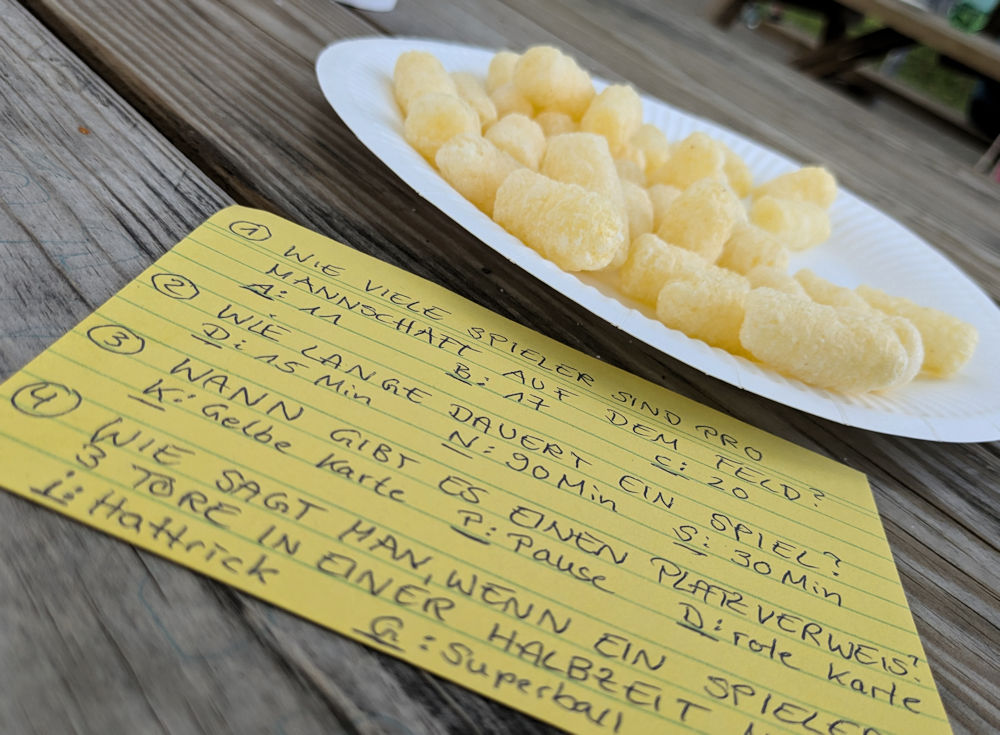 ① WIE VIELE SPIELER SIND PRO
MANNSCHAFT AUF DEM FELD?
A: 11 B: 17 C: 20
② WIE LANGE DAUERT EIN SPIEL?
D: 15 Min N: 90 Min S: 30 Min
③ WANN GIBT ES EINEN PLATZVERWEIS?
K: Gelbe Karte P: Pause D: rote Karte
④ WIE SAGT MAN, WENN EIN SPIELER
3 TORE IN EINER HALBZEIT
i: Hattrick G: Superball